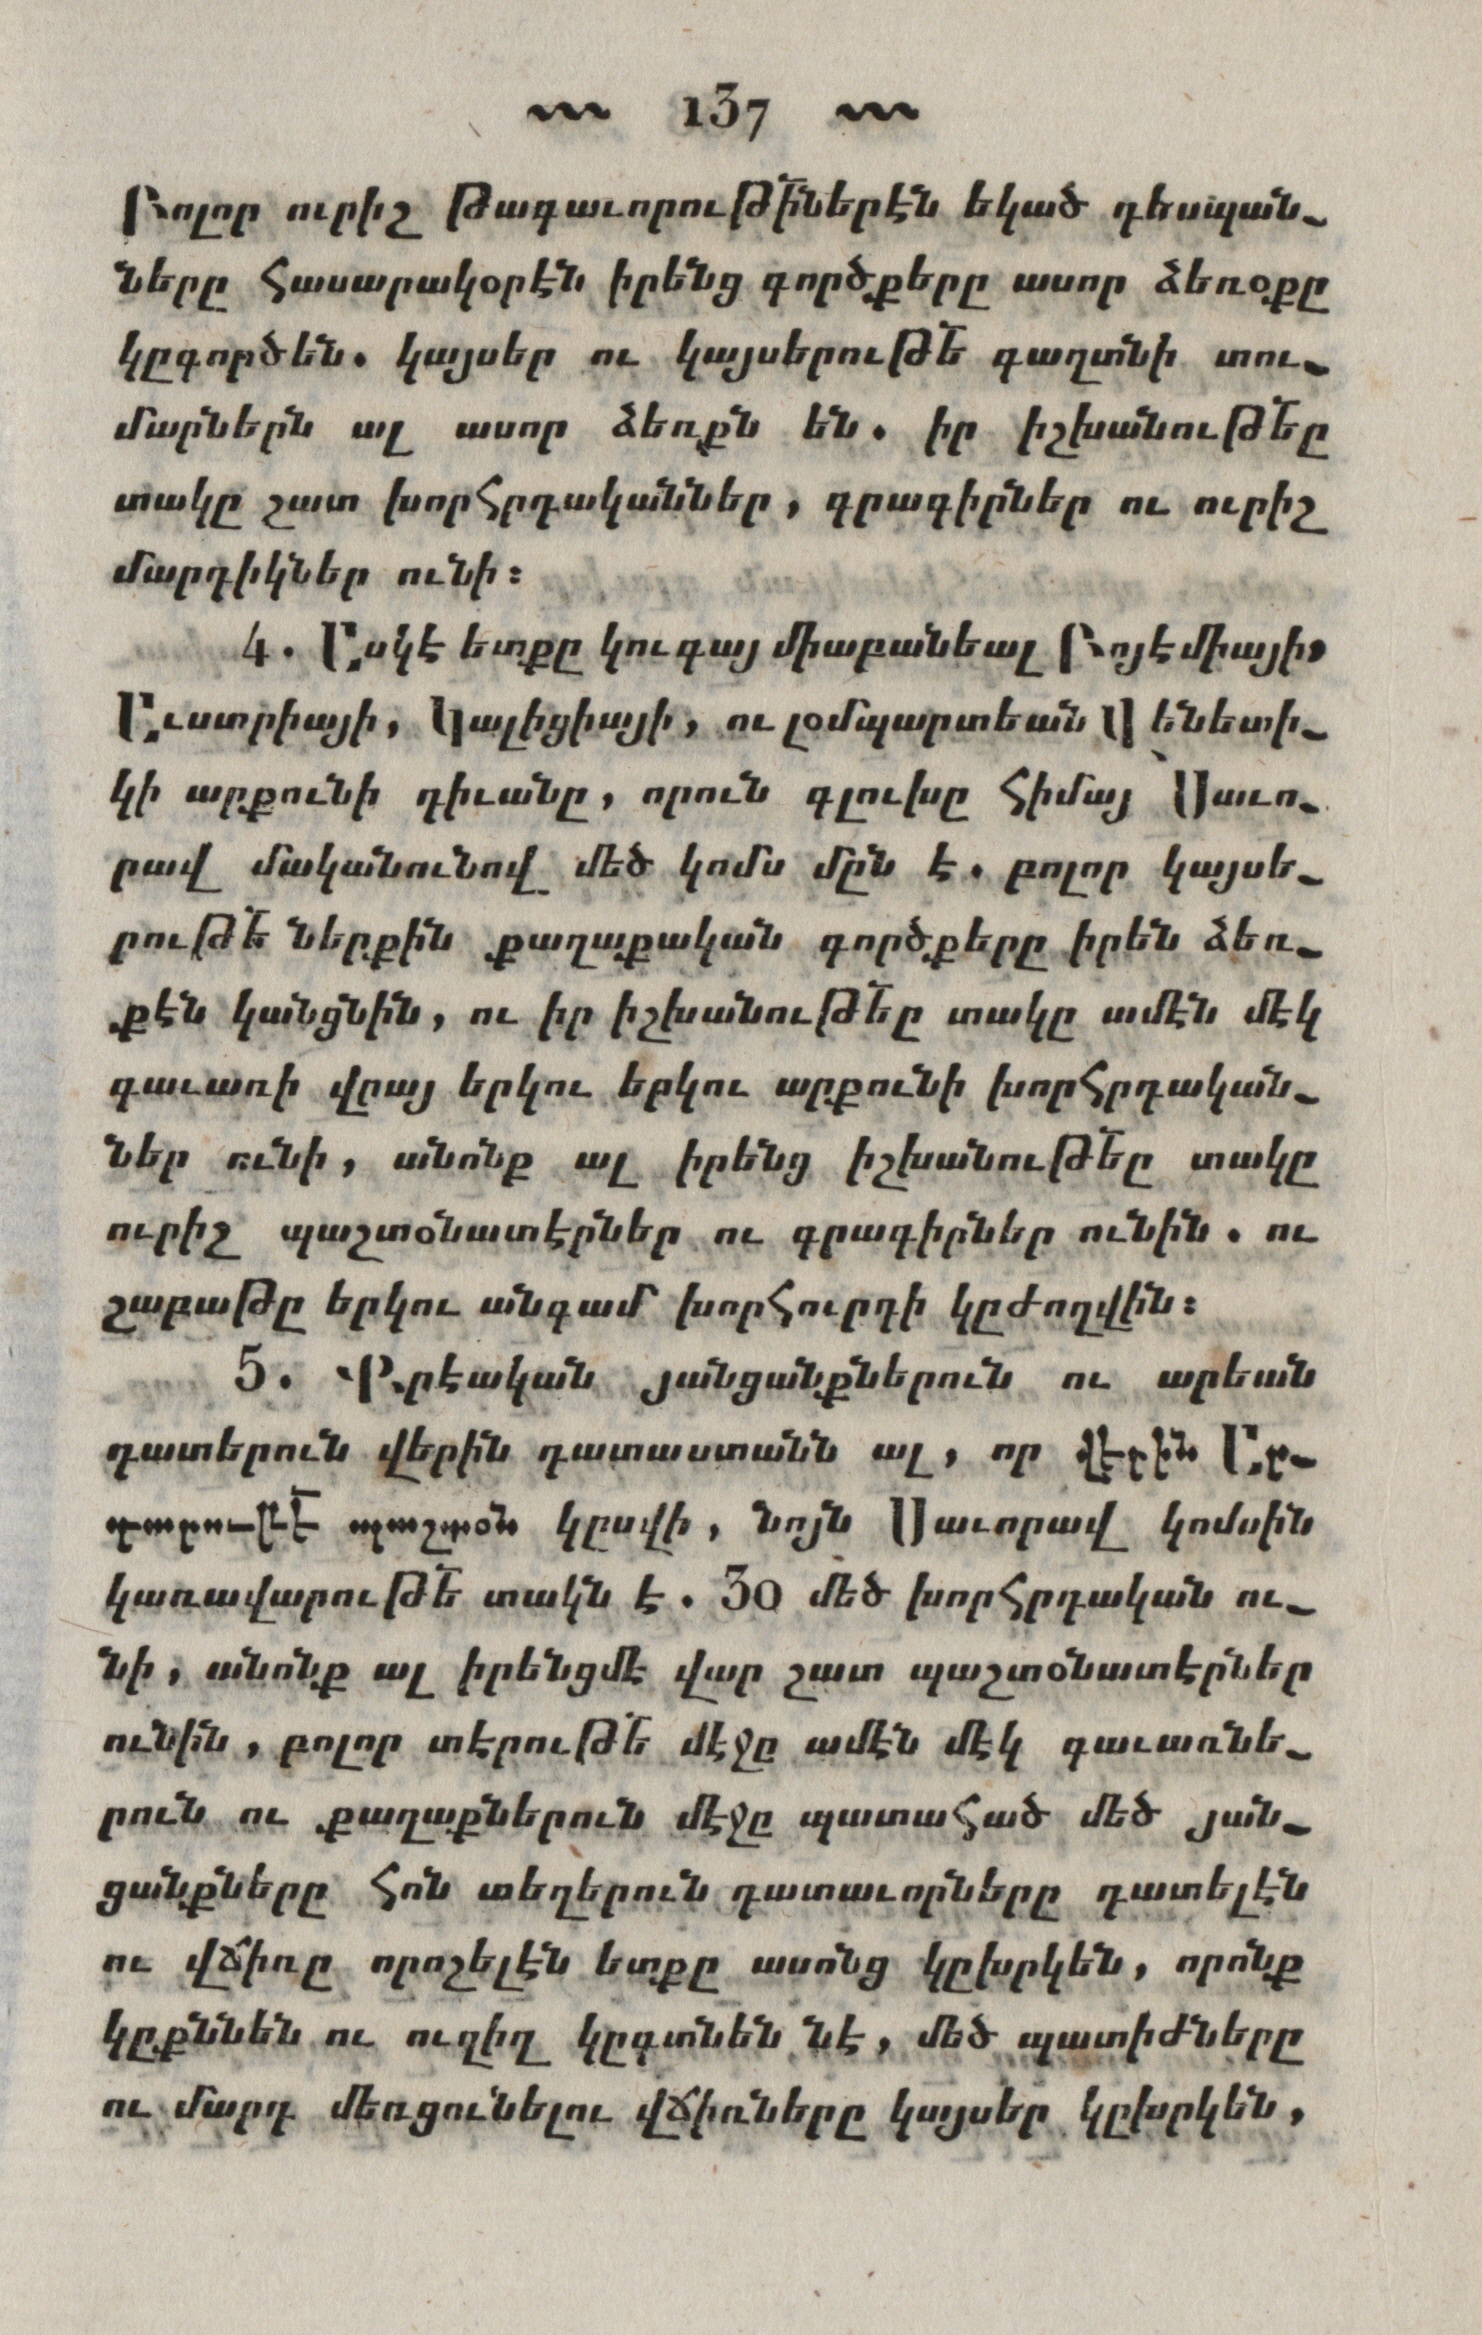 137
Բոլոր ուրիշ թագաւորութիՆներէն եկած դեսպան֊
ները հասարակօրէն իրենց գործքերը ասոր ձեռօքը
կըգործեն. կայսեր ու կայսերութե՜ գաղտնի տու֊
մարներն ալ ասոր ձեռքն են. իր իշխանութե՜ը
տակը շատ խորհրդականներ, գրագիրներ ու ուրիշ
մարդիկներ ունի։
4. Ըսկէ ետքը կու գայ միաբանեալ Բոյէմիայի,
Աւստրիայի, Կալիցիայի, ու լօմպարտեան Վենետի֊
կի արքունի դիւանը, որուն գլուխը հիմայ Սաւո֊
րավ մականունով մեծ կոմս մըն է. բոլոր կայսե֊
րութե՜ ներքին քաղաքական գործքերը իրեն ձեռ֊
քէն կանցնին, ու իր իշխանութե՜ը տակը ամէն մէկ
գաւառի վրայ երկու երկու արքունի խորհրդական֊
ներ ունի, անոնք ալ իրենց իշխանութե՜ը տակը
ուրիշ պաշտօնատէրներ ու գրագիրներ ունին. ու
շաբաթը երկու անգամ խորհուրդի կըժողվին։
5. Քրէական յանցանքներուն ու արեան
դատերուն վերին դատաստանն ալ, որ վէրին Ար֊
դարութե՜ պաշտօն կըսվի, նոյն Սաւորավ կոմսին
կառավարութե՜ տակն է. 30 մեծ խորհրդական ու֊
նի, անոնք ալ իրենցմէ վար շատ պաշտօնատէրներ
ունին, բոլոր տէրութե՜ մէջը ամէն մէկ գաւառնե֊
րուն ու քաղաքներուն մէջը պատահած մեծ յան֊
ցանքները հոն տեղերուն դատաւորները դատելէն
ու վճիռը որոշելէն ետքը ասոնց կըխրկեն, որոնք
կըքննեն ու ուղիղ կըգտնեն նէ, մեծ պատիժները
ու մարդ մեռցունելու վճիռները կայսեր կըխրկեն,